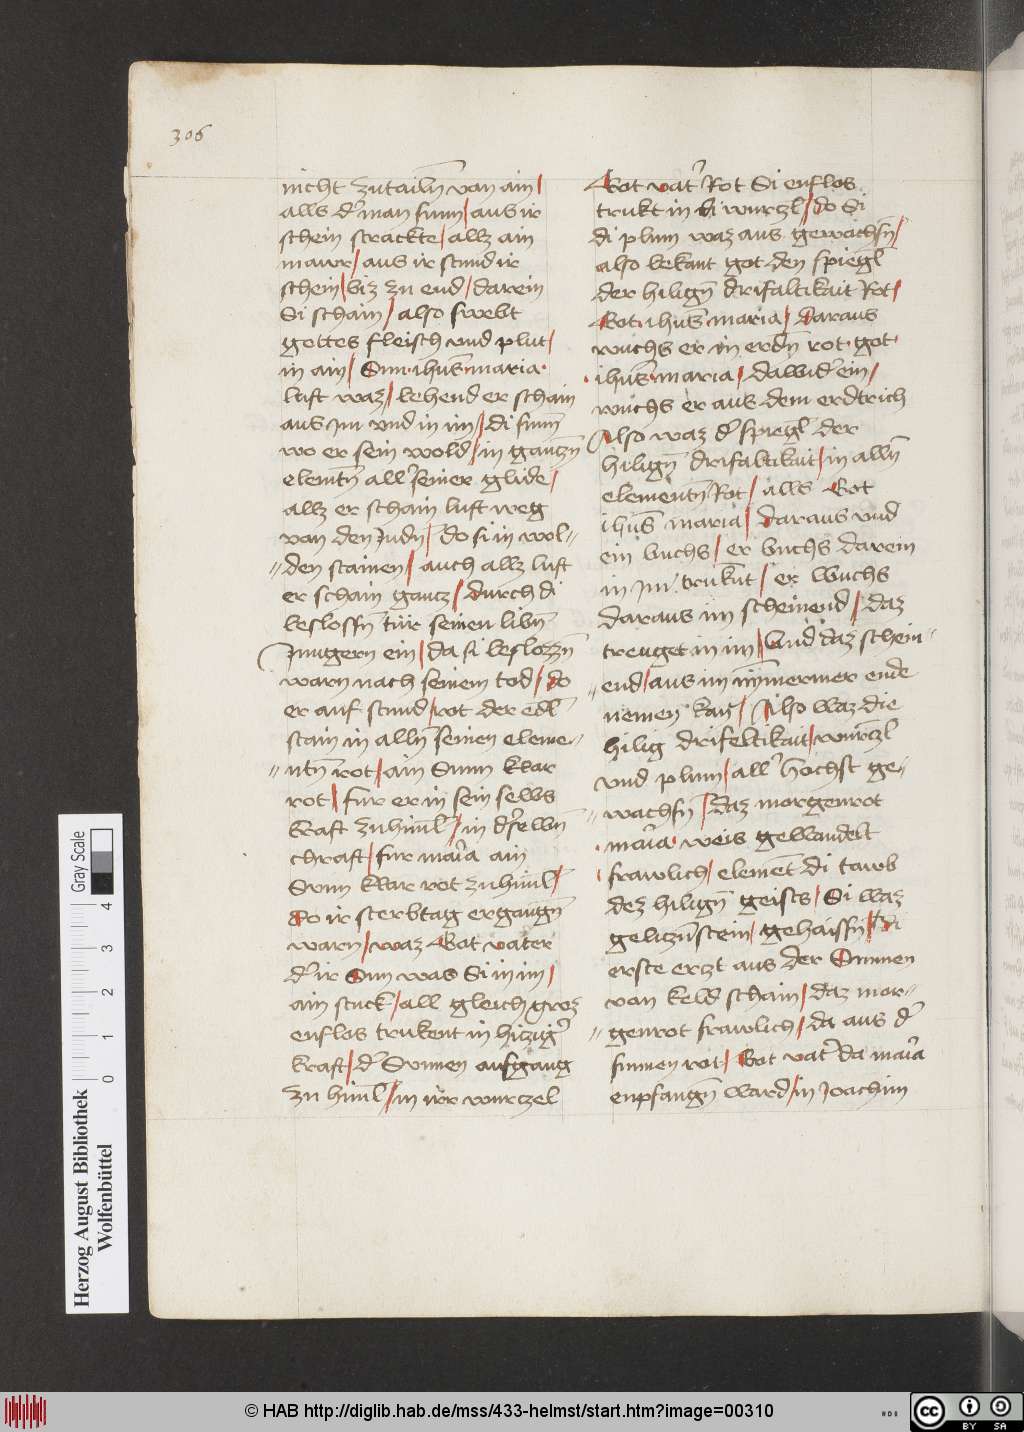 306
nicht zutailn̄ van ain/
alls d' man sunn/ aus ir
schein strackte/ allz ain
mawr/ aus ir stund ir
schein/ biz zu end/ darein
Si schain/ also swebt
gottes fleisch vnd plut/
in ain/ Sun · ihus̄ · maria ·
luft waz/ behend er schain
aus Im vnd in im/ di sunn̄
wo er sein wold/ in gantzn̄
elemt̄n all' seiner glide/
allz er schain luft weg
van den Judn/ do si in wol〃
〃den stainen/ auch allz luft
er schain gantz/ durch di
beslossn̄ tür seinen libn̄
Jungern ein/ da si beslozzn̄
warn nach seinem tod/ do
er auf stund/ rot der edl̄
stain in alln̄ seinen eleme〃
〃nt̄n rot/ ain Sunn klar
rot/ fur er in sein selbs
kraft zu himl̄/ in d'selbn̄
chraft/ fur mar̄ia ain
Sunn klar rot zu himl̄/
do ir sterbtag ergangn̄
warn/ waz Got vater
d' ir Sun was Si in im/
ain stuck/ all gleich groz
enslos trukent in hitzig'
kraft/ d' Sunnen aufgang
zu himl̄/ in irr wurtzel
Got vat' Rot Si enslos
trukt in di wurtzl/ do Si
di plum waz aus gewachsn̄/
also bekant got den spiegl̄
der hilign̄ drifaltikait Rot/
Got · ihus̄ · maria/ daraus
wuchs er in erdn̄ rot · got ·
· ihus̄ · maria/ dawid' ein/
wuchs er aus dem erdtrich
Also waz d' spiegl̄ der
hilign̄ drifaltikait/ in alln̄
elementn̄ Rot/ alls Got
ihus̄ maria/ daraus vnd
ein buchs/ er buchs darein
in Im trukn̄t/ er wuchs
daraus im scheinend/ daz
treuget in im/ Vnd daz schein〃
〃end/ aus im nȳmermer ende
nemen kan/ Also waz die
hilig drifeltikait/ wurtzl̄
vnd plum/ all' hochst ge〃
〃wachsn̄/ daz morgenrot
· mar̄ia · weis gewandelt
frawlich/ element̄ di tawb
dez hilign̄ geists/ Si waz
geliczn̄stein/ gehaissn̄/ di
erste erzt aus der Sunnen
van keld schain/ daz mor〃
〃genrot frawlich/ da aus d'
sunnen rot/ Got vat' da mar̄ia
enpfangn̄ ward/ in Joachim
Herzog August Bibliothek
Wolfenbüttel
0 1 2 3 4
Gray Scale
© HAB http://diglib.hab.de/mss/433-helmst/start.htm?image=00310
HAB
cc BY SA